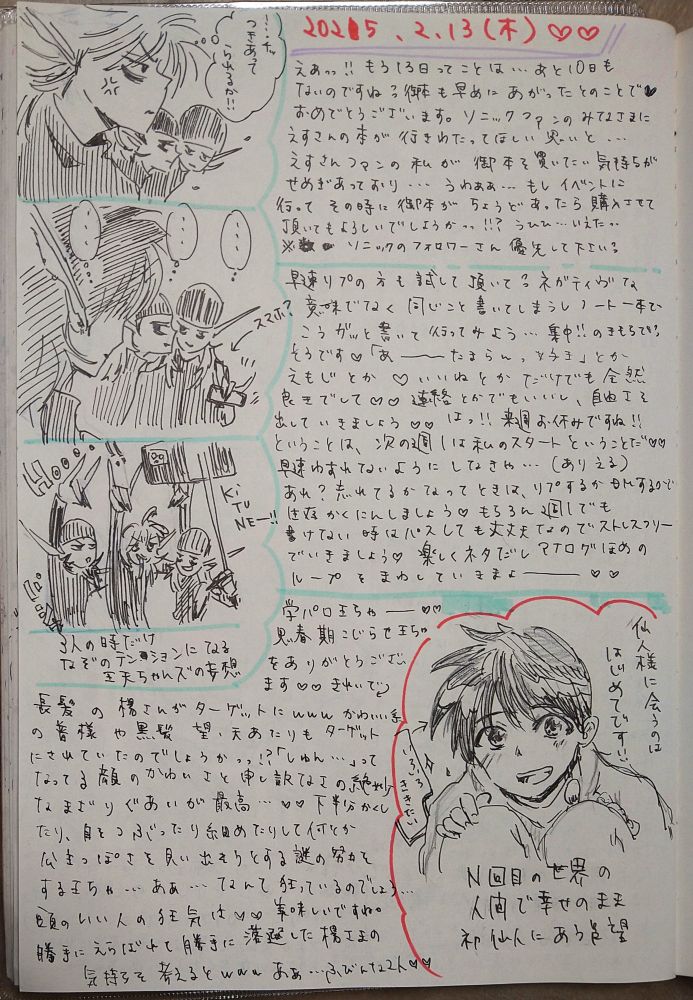 2025.2.13(木)♡♡
…チッ
つきあって
られるか!!
えぁっ!! もう13日ってことは…あと10日も
ないのですね? 御本も早めにあがったとのことで♥
おめでとうございます。ソニックファンのみなさまに
えすさんの本が行きわたってほしい思いと…
えすさんファンの私が御本を買いたい気持ちが
せめぎあっており… うわぁぁ… もしイベントに
行ってその時に御本がちょうどあったら購入させて
頂いてもよろしいでしょうかっ!!? うひひ…いえっ
※ ソニックのフォロワーさん優先して下さい?
…
…
…
スマホ?
早速リプの方も試して頂いて? ネガティヴな
意味でなく同じこと書いてしまうしノート一本で
こうガッと書いて行ってみよう… 集中!!のきもちです
そうです♡「あ――たまらんっ」とか
えもじとか♡いいねとかだけでも全然
良きでして♡♡ 連絡とかでもいいし、自由さを
出していきましょう♡♡ はっ!! 来週お休みですね!!
ということは、次の週は私のスタートということだ♡♡
早速わすれないようにしなきゃ…(ありえる)
あれ? 荒れてるかなってときは、リプするかDMするかで
生存かくにんしましょう♡ もちろん2週しでも
書けない時はパスしても丈夫なのでストレスフリー
でいきましょう♡ 楽しくネタだしアナログほめの
ループをまわしていきまよ――♡♡
Hooo!
KiTUNEー!!
3人の時だけ
なぞのテンションになる
王天ちゃんズの夢想
学パロ王ちゃ――♡♡
思春期こじらせ王ちゃ
をありがとうござい
ます♡♡ きれいで
長髪の楊さんがターゲットにwww かわいい系
の皆様や黒髪 望、天あたりもターゲット
にされていたのでしょうかっ!?「しゅん…」って
なってる顔のかわいさと申し訳なさの絶妙
なまざりぐあいが最高…♡♡ 下半分かくし
たり、目をつぶったり細めたりして何とか
公主っぽさを見い出そうとする謎の努力を
する王ちゃ…あぁ… なんて狂っているのでしょう…
頭のいい人の狂気は♡♡ 美味しいですね。
勝手にえらばれて勝手に落胆した楊さまの
気持ちを考えるとwww あぁ…ふびんな2人♡♡
仙人様に会うのは
はじめてです…!!
いろいろ
ききたい
N回目の世界の
人間で幸せのまま
初仙人にあう望